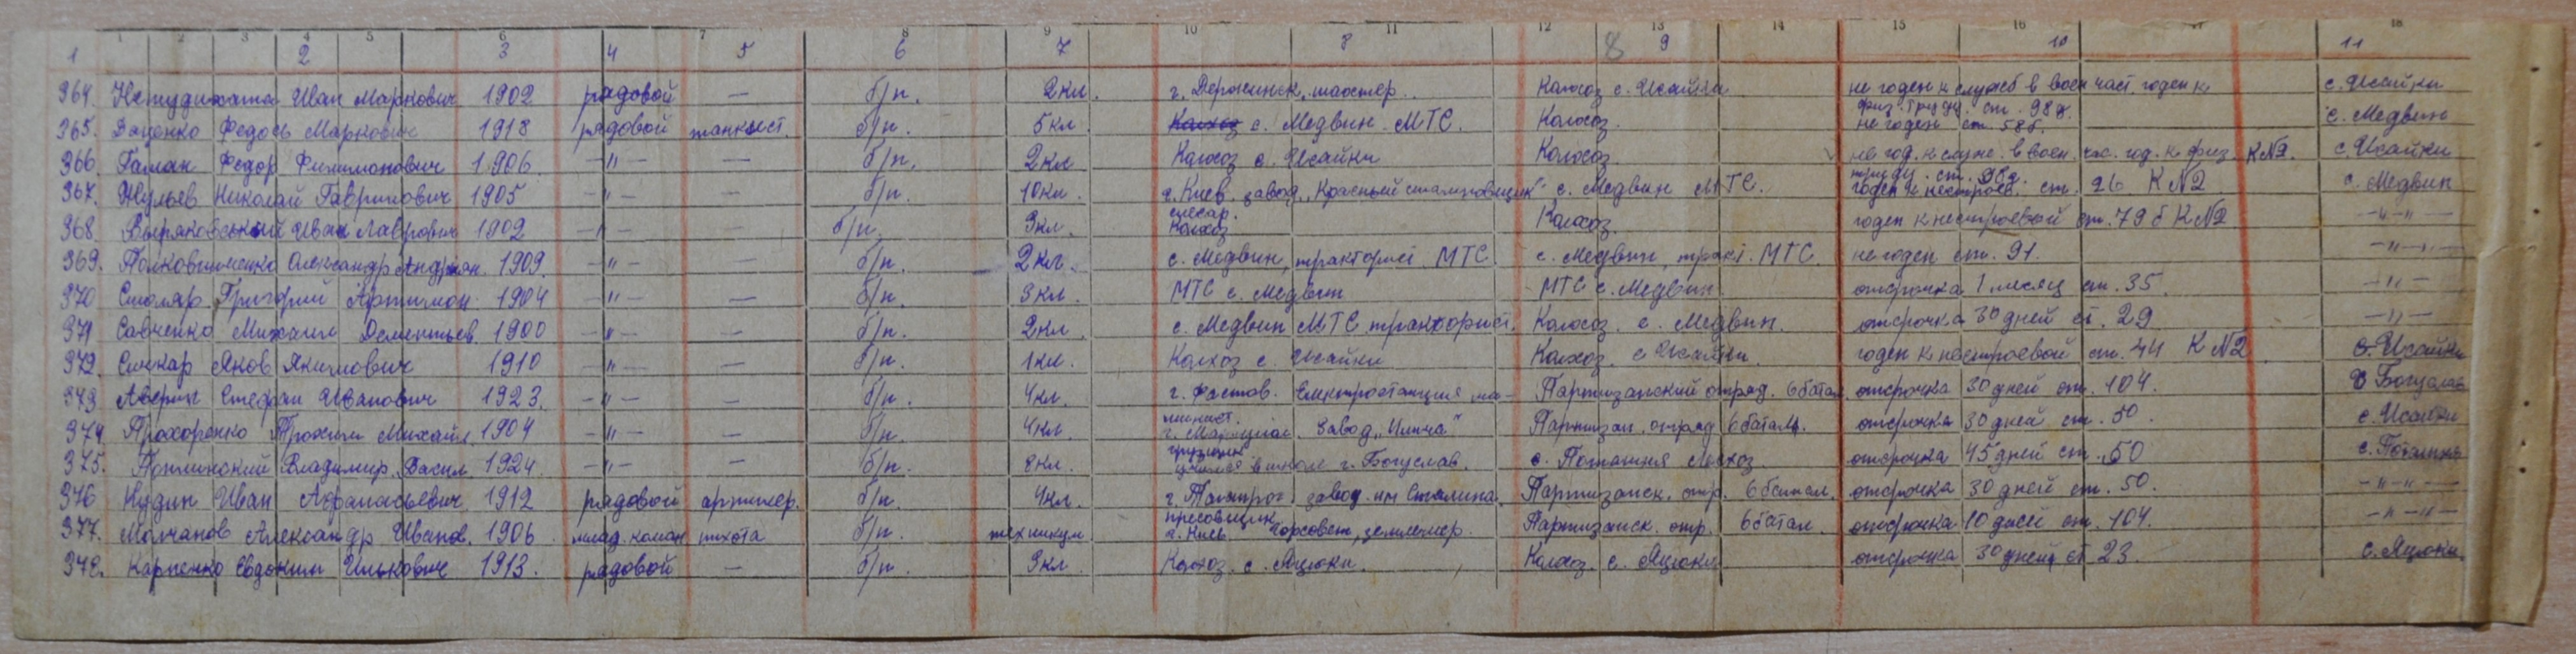 1 2 3 4 5 6 7 8 9 10 11 12 13 14 15 16 17 18
1 2 3 4 5 6 7 8 8 9 10 11
364. Нетудихата Иван Маркович 1902 рядовой — б/п. 2 кл. г. Держинск, мастер. Колхоз с. Исайки не годен к службе в воен част. годен к с. Исайки
физ. труду. ст. 98 д.
365. Даценко Федось Маркович 1918 рядовой танкист. б/п. 5 кл. Колхоз с. Медвин МТС. Колхоз. не годен ст. 58 б. с. Медвин
366. Гаман Федор Филимонович 1906. —"— — б/п. 2 кл Колхоз с. Исайки Колхоз не год. к служ. в воен. час. год. к физ. К№2. с. Исайки
труду. ст.
367. Жульев Николай Гаврилович 1905 —"— — б/п. 10 кл г. Киев, завод „Красный штамповщик" с. Медвин МТС. годен к нестроев. ст. 26 К№2 с. Медвин
слесар.
368. Иван Лаврович 1902 —"— — б/п. 3 кл. Колхоз Колхоз. годен к нестроевой ст. 79 б К№2 —"—"—
369. Александр Андриян. 1909. —"— — б/п. 2 кл. с. Медвин, тракторист МТС с. Медвин, тракт. МТС. не годен ст. 91. —"—"—
370 Столяр Григорий 1904 —"— — б/п. 3 кл. МТС с. Медвин МТС с. Медвин отсрочка 1 месяц ст. 35. —"—
371 Савченко Михаил Дементьев. 1900 —"— — б/п. 2 кл с. Медвин МТС тракторист. Колхоз. с. Медвин. отсрочка 30 дней ст. 29 —"—
372. Яков Якимович 1910 —"— — б/п. 1 кл. Колхоз с. Исайки Колхоз. с Исайки годен к нестроевой ст. 44 К№2 с. Исайки
373 Аверин Стефан Иванович 1923. —"— — б/п. 4 кл. г. Фастов. Електростанция ма- Партизанский отряд. 6 батал. отсрочка 30 дней ст. 104. Богуслав
шинист.
374. Прохоренко Трохим Михайл. 1904 —"— — б/п. 4 кл. Завод „Илича" Партизан. отряд 6 батал. отсрочка 30 дней ст. 50. с. Исайки
375. Владимир. Васил. 1924. —"— — б/п. 8 кл. учился в школе г. Богуслав. с. Поташня отсрочка 45 дней ст. 50 с. Поташня
376 Иван Афанасьевич 1912 рядовой артилер. б/п. 4 кл. г. Таганрог завод им Сталина. Партизанск. отр. 6 батал. отсрочка 30 дней ст. 50. —"—"—
пресовщик
377. Молчанов Александр Иванов. 1906 млад. коман пихота б/п. техникум г. Киев Горсовет, землемер. Партизанск. отр. 6 батал. отсрочка 10 дней ст. 104. —"—"—
378. Карпенко Евдоким Илькович 1913. рядовой — б/п. 3 кл Колхоз. с. Яцюки. Колхоз. с. Яцюки отсрочка 30 дней ст 23. с. Яцюки.